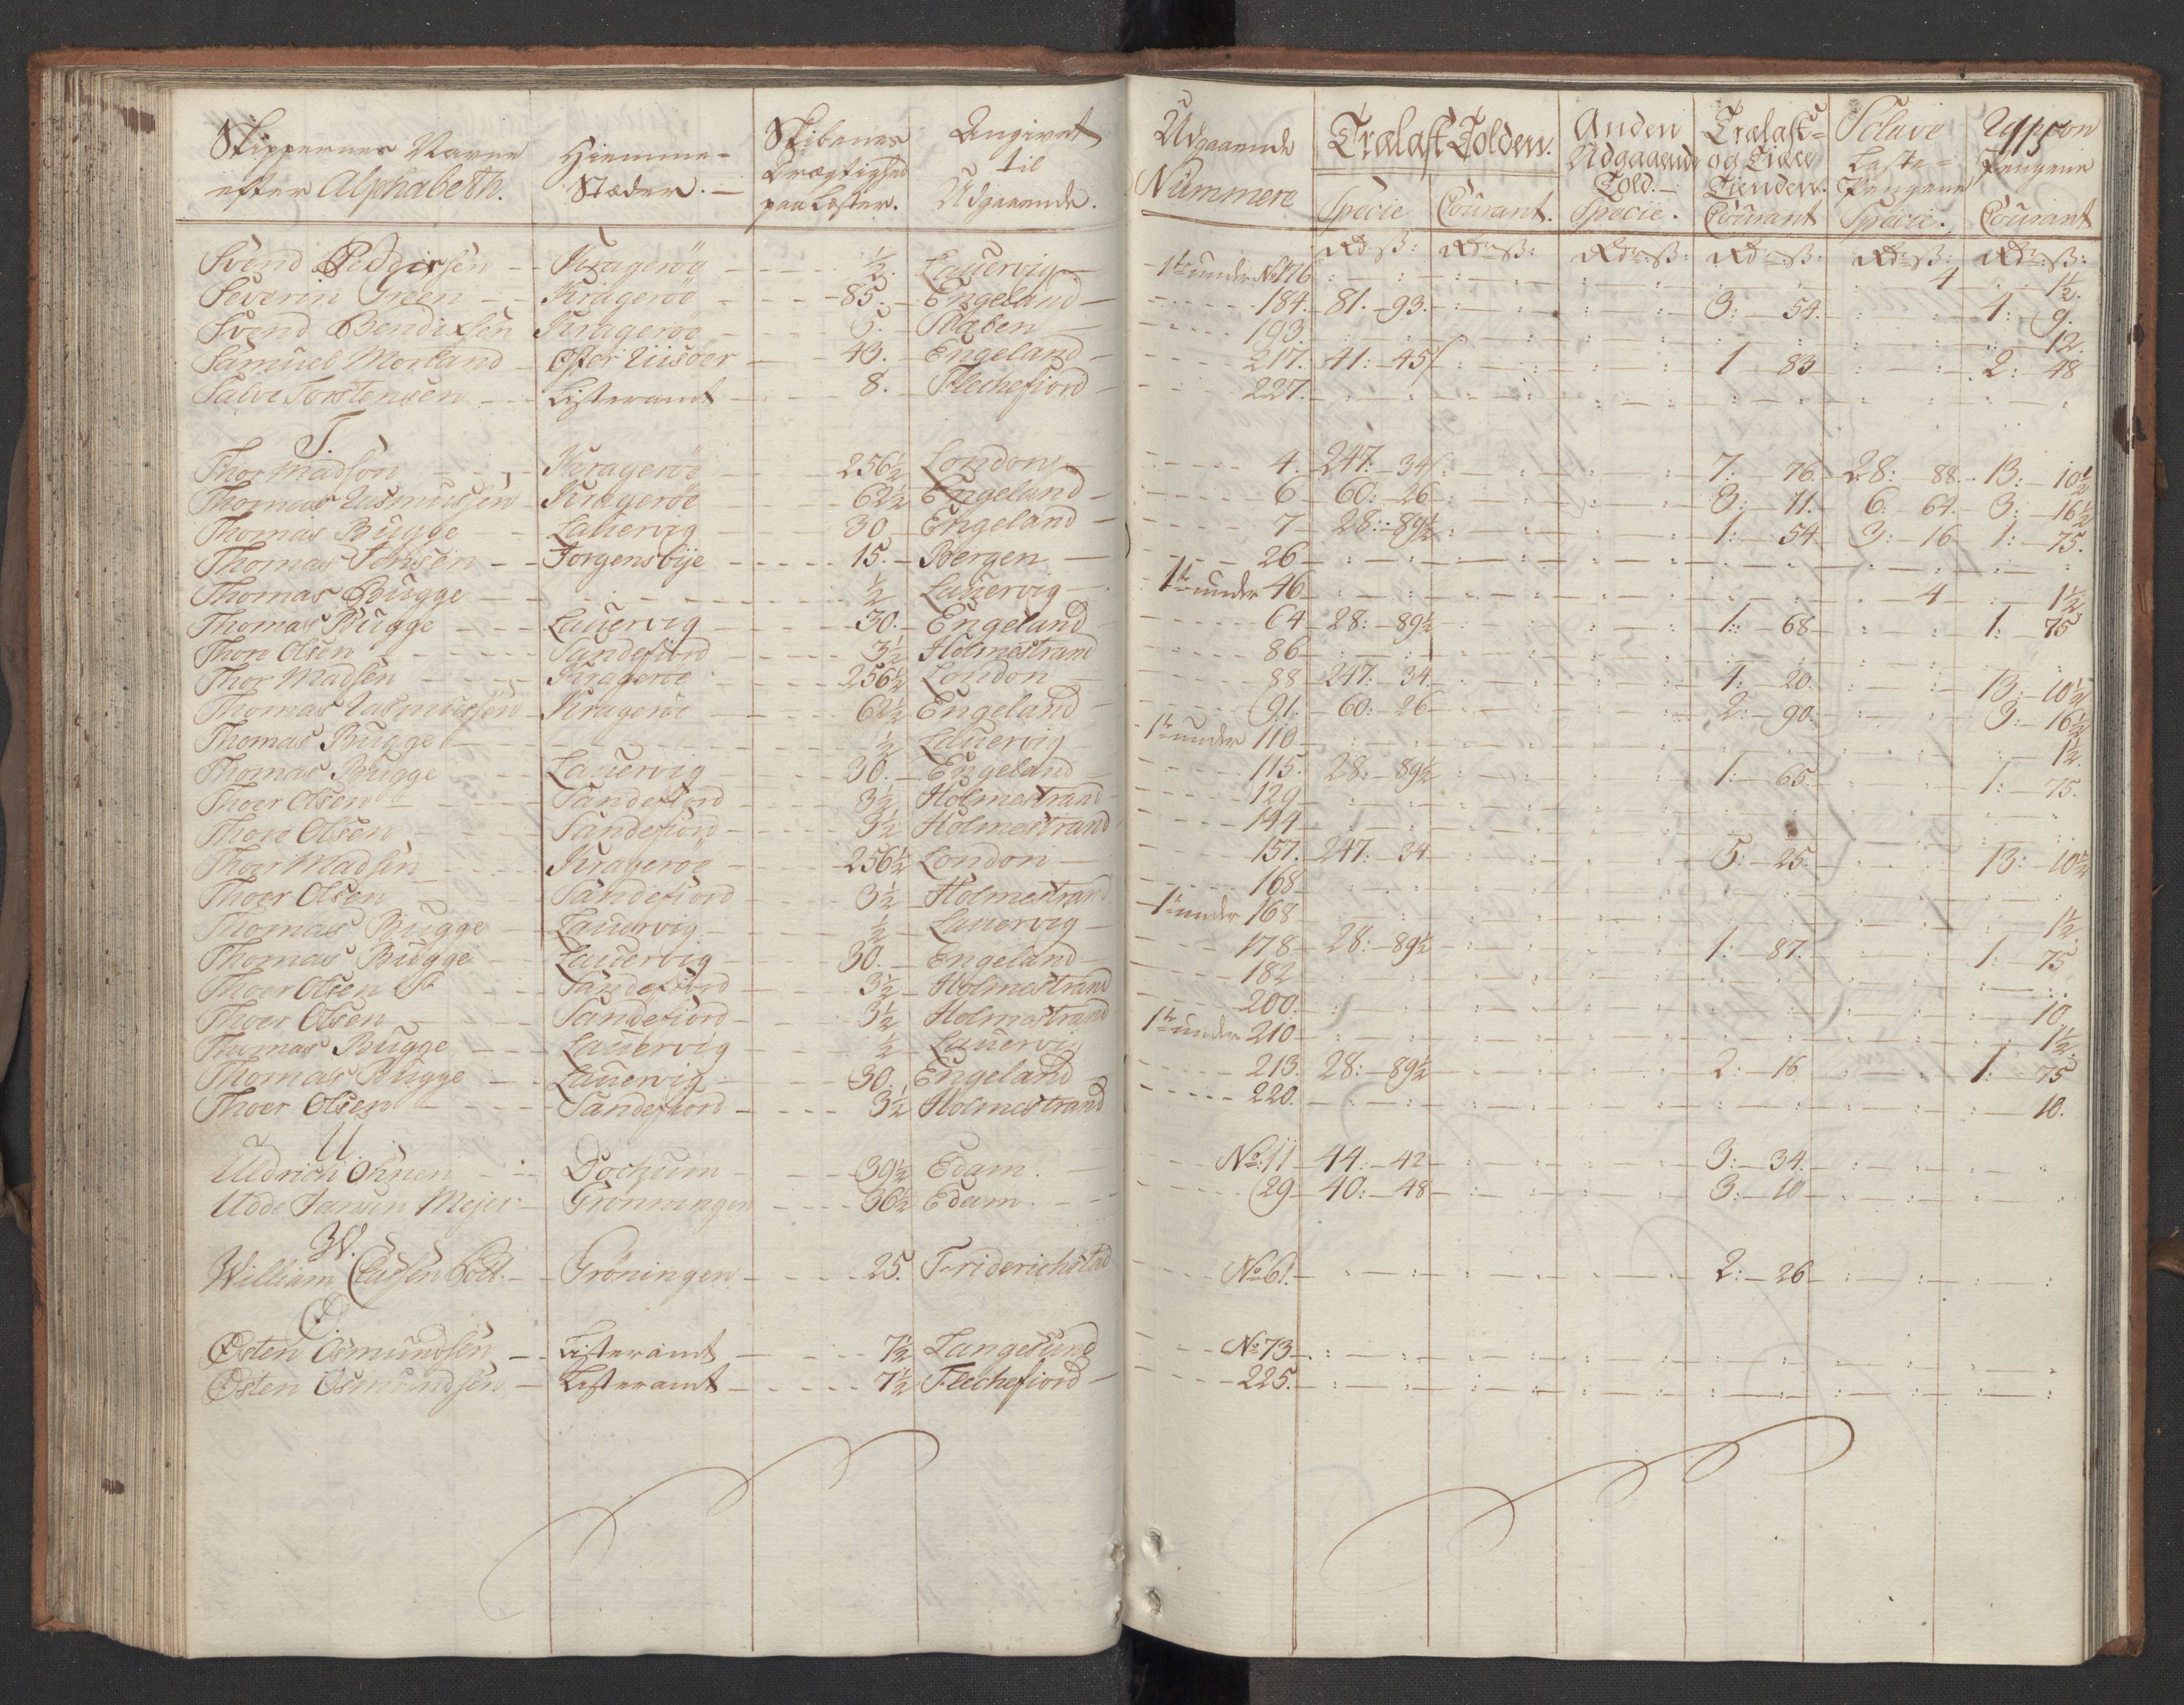 Skippernes Navne efter Alphabeth. | Hiemme-Stæder. | Skibenes Drægtighed paa Læster. | Angivet til Udgaaende. | Udgaaende Nummere | Trælast Tolden. Specie | Courant. | Anden Udgaaende Told. Specie. | Trælast- og Tienden. Courant | Sclave Laste-Pengene Specie. | Pengene Courant
Rdr ß: | Rdr ß: | Rdr ß: | Rdr ß: | Rdr ß: | Rdr ß:
Svend Pedersen - Kragerøe - ½. Lauervig - 1te under No 176 4 1½.
Severin Green - Kragerøe - 85. - Engeland - 184. 81. 93. 3: 54. 4: 9.
Svend Bendixsen Kragerøe - 5. - - 193. 12.
Samuel Morland - Øster Riisöer - 43. - Engeland - 217. 41: 45 1 83 2: 48
Salve Torstensen - Listeramt - 8. Flechefiord - 227.
T.
Thor Madsön - Kragerøe - 256½ London - 4. 247. 34 7: 76. 28: 88. 13: 10½
Thomas Rasmussen - Kragerøe - 62½ Engeland - 6 60: 26 3: 11. 6: 64. 3: 16½
Thomas Bugge - Lauervig - 30 Engeland - 7 28: 89½ 1: 54 3: 16 1: 75.
Thomas Jensen - Jorgensbye - 15. - Bergen - 26
Thomas Bugge - ½ Lauervig - 1te under 46 4 1½
Thomas Bugge - Lauervig - 30. - Engeland 64 28: 89½ 1: 68 1: 75
Thore Olsen - Sandefiord - 3½ Holmestrand 86
Thor Madsen - Kragerøe - 256½ London - 88 247: 34 4: 20. 13: 10½
Thomas Rasmussen - Kragerøe - 62½ Engeland - 91. 60: 26 2: 90. 3: 16½
Thomas Bugge - ½ Lauervig - 1te under 110 1½.
Thomas Bugge - Lauervig - 30. - Engeland - 115. 28: 89½ 1: 65. 1: 75.
Thoer Olsen - Sandefiord - 3½ Holmestrand 129
Thore Olsen - Sandefiord - 3½ Holmestrand 144
Thoer Madsen - Kragerøe - 256½ London - 157. 247: 34 5: 25. 13: 10½
Thoer Olsen - Sandefiord - 3½ Holmestrand 168
Thomas Bugge - Lauervig - ½ Lauervig - 1te under 168 1½
Thomas Bugge - Lauervig - 30. - Engeland - 178 28: 89½ 1: 87. 1: 75
Thoer Olsen - Sandefiord - 3½ - Holmestrand 182
Thoer Olsen - Sandefiord - 3½ Holmestrand 200. 10
Thomas Bugge - Lauervig - ½ Lauervig 1te under 210 1½.
Thomas Bugge - Lauervig - 30. Engeland - 213. 28: 89½ 2: 16 1: 75
Thoer Olsen - Sandefiord - 3½ Holmestrand 220. 10.
U.
Uldrich - Dockum - 39½ Edam. - No: 11 44: 42 3: 34.
Udde Jansen Mejer - Grönningen - 36½ Edam. - 29 40: 48 3: 10
W.
William Classen - Gröningen - 25. Friderichstad No 61. 2: 26
Ø.
Østen Osmundsen - Listeramt - 7½ Langesund No 73
Østen Osmundsen - Listeramt - 7½ Flechefiord - 225.